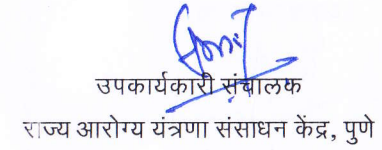 उपकार्यकारी संचालक
राज्य आरोग्य यंत्रणा संसाधन केंद्र, पुणे